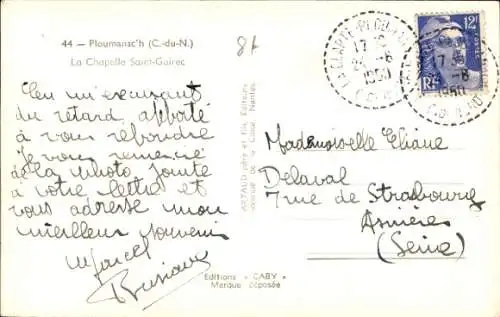 44 - Ploumanac'h (C.-du-N.)
La Chapelle Saint-Guirec
8f
En m'excusant
du retard apporté
à vous répondre
Je vous remercie
de la photo jointe
à votre lettre et
vous adresse mon
meilleur souvenir
Marcel
ARTAUD père et fils, Editeurs
Nantes
Editions "GABY"
Marque déposée
LA CLARTÉ
17
-8
1950
12F
RF
17
-8
1950
Mademoiselle Eliane
Delaval
7 rue de Strasbourg
Asnières
(Seine)